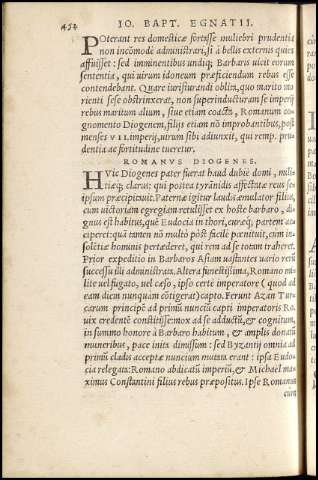 454
IO. BAPT. EGNATII.
POterant res domesticæ fortasse muliebri prudentia
non incōmodè administrari, si à bellis externis quies
affuisset: sed imminentibus undiq; Barbaris uicit eorum
sententia, qui uirum idoneum præficiendum rebus esse
contendebant. Quare iurisiurandi oblita, quo marito mo
rienti sese obstrinxerat, non superinducturam se imperij
rebus maritum alium, siue etiam coacto, Romanum co
gnomento Diogenem, filijs etiam nō improbantibus, post
menses VII. imperij, uirum sibi adiunxit, qui remp. pru
dentia ac fortitudine tueretur.
ROMANVS DIOGENES.
HVic Diogenes pater fuerat haud dubiè domi, mili
tiæq; clarus: qui postea tyrānidis affectatæ reus se
ipsum præcipitauit. Paternæ igitur laudis æmulator filius,
cum uictoriam egregiam retulisset ex hoste barbaro, di
gnus est habitus, quē Eudocia in thori, curæq; partem ac
ciperet: quā tantum nō multò pòst facilè pœnituit, cum in
solētiæ hominis pertæderet, qui rem ad se totam traheret.
Prior expeditio in Barbaros Asiam uastantes uario rerū
successu illi administrata. Altera funestissima, Romano mi
lite uel fugato, uel cæso, ipso certe imperatore (quod ad
eam diem nunquam cōtigerat) capto. Ferunt Azan Tur
carum principē ad primū nunciū capti imperatoris Ro.
uix credentē constitisse: mox ad se adductū, & cognitum,
in summo honore à Barbaro habitum, & amplis donatū
muneribus, pace inita dimissum: sed Byzantij omnia ad
primū cladis acceptæ nuncium mutata erant: ipsa Eudo
cia relegata: Romano abdicatū imperiū, & Michaël ma
ximus Constantini filius rebus præpositus. Ipse Romanus
cum